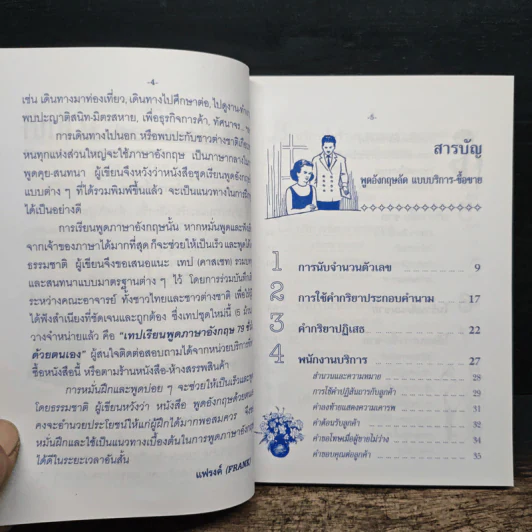 -4-
เช่น เดินทางมาท่องเที่ยว, เดินทางไปศึกษาต่อ, ไปดูงาน
พบปะญาติสนิท-มิตรสหาย, เพื่อธุรกิจการค้า, ทัศนาจร
การเดินทางไปนอก หรือพบปะกับชาวต่างชาติ
หนทุกแห่งส่วนใหญ่จะใช้ภาษาอังกฤษ เป็นภาษากลาง
พูดคุย-สนทนา ผู้เขียนจึงหวังว่าหนังสือชุดเรียนพูดอังกฤษ
แบบต่าง ๆ ที่ได้รวมพิมพ์ขึ้นแล้ว จะเป็นแนวทางใน
ได้เป็นอย่างดี
การเรียนพูดภาษาอังกฤษนั้น หากหมั่นพูดและฟัง
จากเจ้าของภาษาได้มากที่สุด ก็จะช่วยให้เป็นเร็ว และพูดได้
ธรรมชาติ ผู้เขียนจึงขอเสนอแนะ เทป (คาสเซท) รวมบท
และสนทนาแบบมาตรฐานต่าง ๆ ไว้ โดยการร่วมบันทึก
ระหว่างคณะอาจารย์ ทั้งชาวไทยและชาวต่างชาติ เพื่อให้
ได้ฟังสำเนียงที่ชัดเจนและถูกต้อง ซึ่งเทปชุดใหม่นี้ (6 ม้วน
วางจำหน่ายแล้ว คือ "เทปเรียนพูดภาษาอังกฤษ 79 ชั่ว
ด้วยตนเอง" ผู้สนใจติดต่อสอบถามได้จากหน่วยบริการ
ซื้อหนังสือนี้ หรือตามร้านหนังสือ-ห้างสรรพสินค้า
การหมั่นฝึกและพูดบ่อย ๆ จะช่วยให้เป็นเร็วและพูด
โดยธรรมชาติ ผู้เขียนหวังว่า หนังสือ พูดอังกฤษด้วยตน
คงจะอำนวยประโยชน์ให้แก่ผู้ฝึกได้มากพอสมควร จึง
หมั่นฝึกและใช้เป็นแนวทางเบื้องต้นในการพูดภาษาอังกฤษ
ได้ดีในระยะเวลาอันสั้น
แฟรงค์ (FRANK)
-5-
สารบัญ
พูดอังกฤษลัด แบบบริการ-ซื้อขาย
1 การนับจำนวนตัวเลข 9
2 การใช้คำกริยาประกอบคำนาม 17
3 คำกริยาปฏิเสธ 22
4 พนักงานบริการ 27
สำนวนและความหมาย 28
การใช้คำปฏิสันถารกับลูกค้า 29
คำลงท้ายแสดงความเคารพ 31
คำต้อนรับลูกค้า 32
คำขอโทษเมื่อผู้ขายไม่ว่าง 34
คำขอบคุณต่อลูกค้า 35